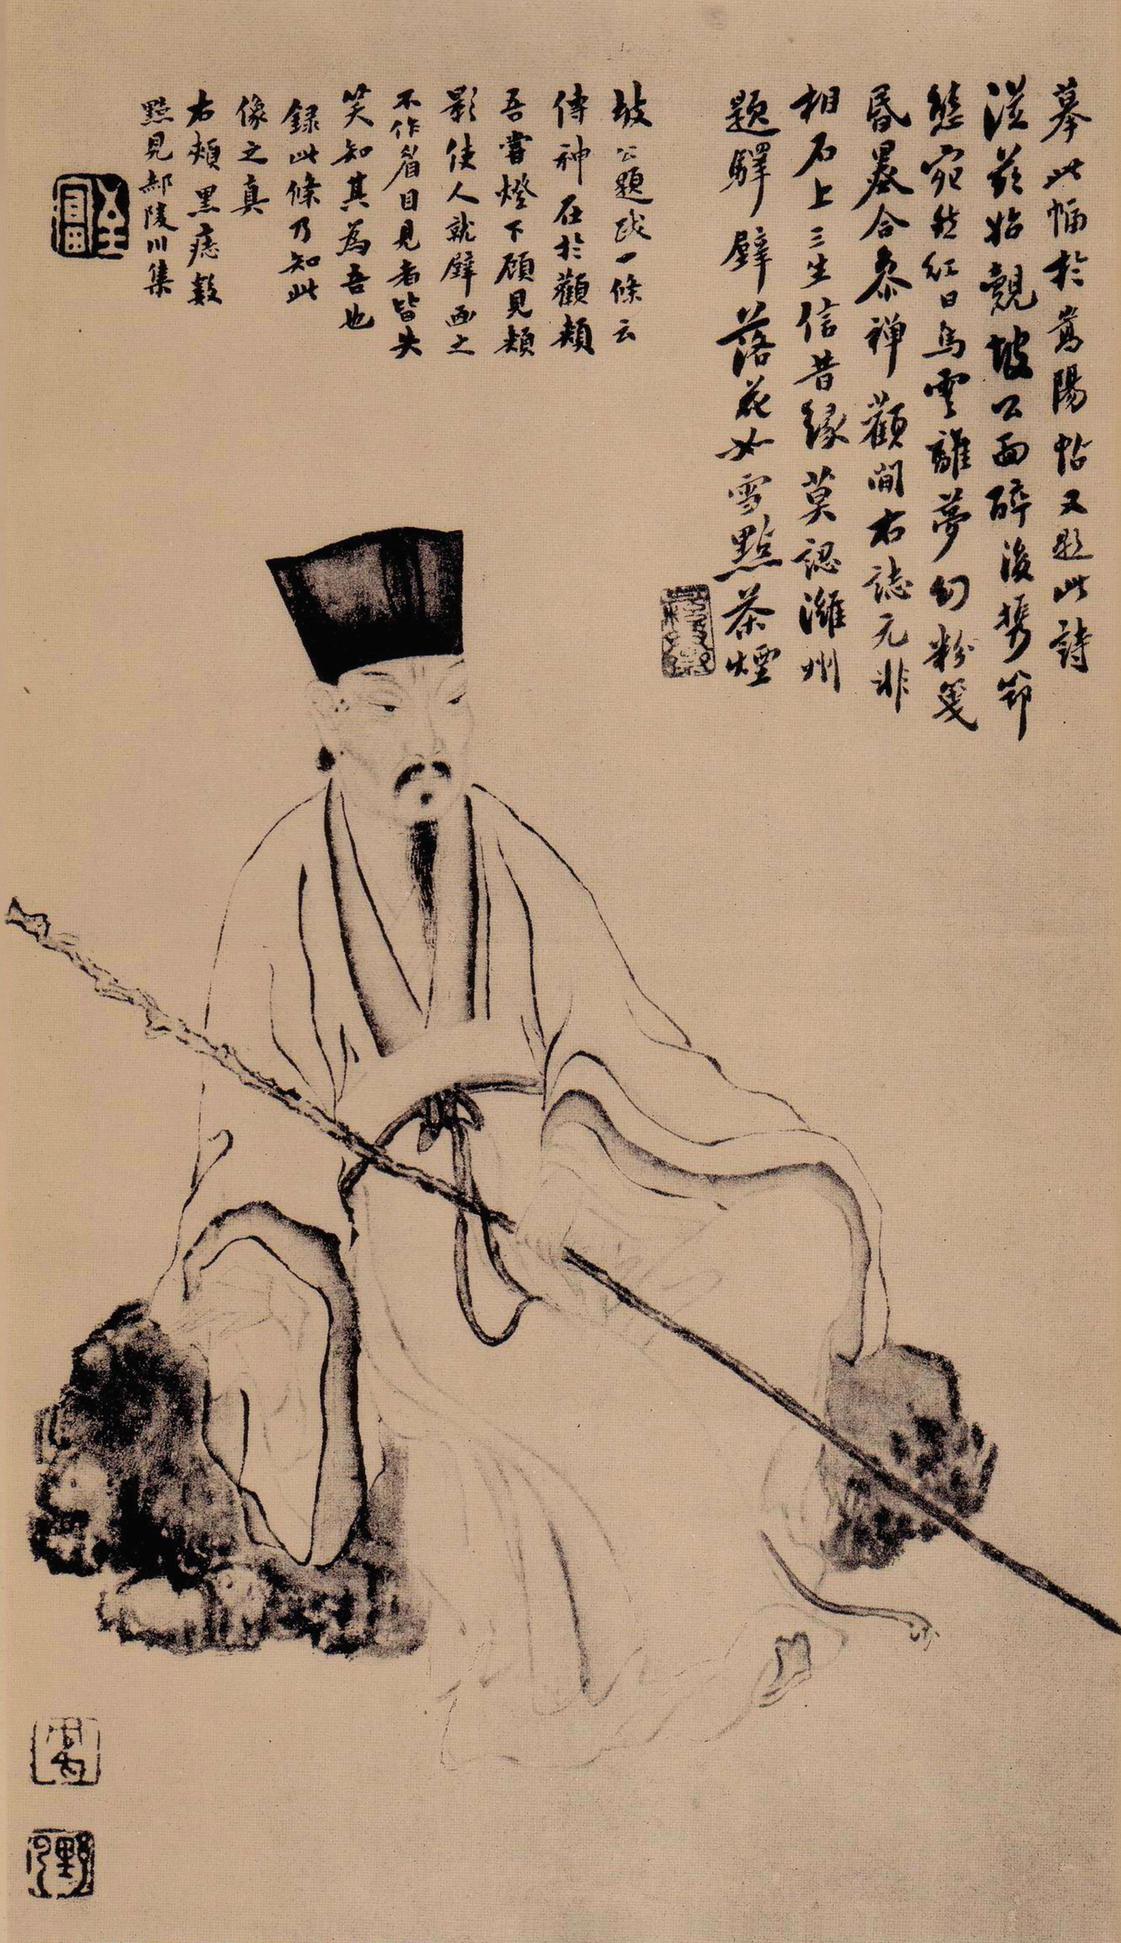 摹此幅於嵩陽帖又題此詩
從茲始覿坡公面醉後攜笻
態宛然紅日烏雲離夢幻粉箋
昏墨合參禪觀間右誌元非
相石上三生信昔緣莫認濰州
題驛壁落花如雪點茶煙
坡公題跋一條云
傳神在於顴頰
吾嘗燈下顧見頰
影使人就壁畫之
不作眉目見者皆失
笑知其為吾也
錄此條乃知此
像之真
右頰黑痣數
點見郝陵川集